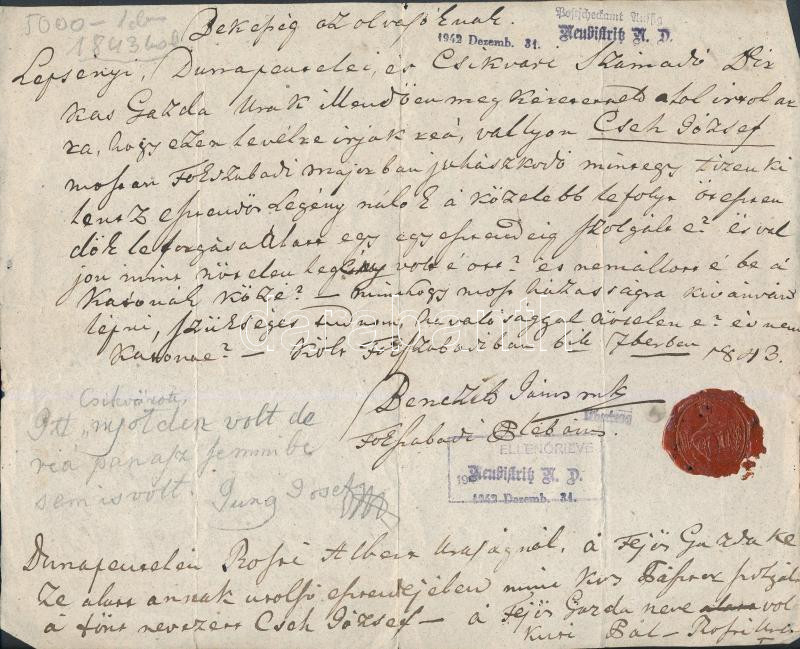 5000 -
1843
Bekeség az olvasóknak.
Postscheckamt
1942 Dezemb. 31.
Neubistritz N. D.
Lepsenyi, Dunapentelei, és Csikvari Számadó Bir
kas Gazda Urak illendően meg kéretnek alol irrol ar
ra, hogy ezen levélre irjak reá, vallyon Cseh József
mostan Fölszabadi majorban juhászkodó mintegy tizenki
lentz esztendős Legény nálok á közelebb lefolyt öt eszten
dők leforgása alatt egy egy esztendeig szolgált e? és val
jon mint nőtelen legény volt é ott? és nem állott é be á
Katonák közé? — minthogy most házasságra kivánván
lépni, szükséges tudnom, ha valósággal nőtelen e? és nem
Katona e? — Költ Fölszabadiban 7berben 1843.
Benedek János mk
Fölszabadi Plébános.
Csikvárott
Itt
volt de
reá panasz semmibe
sem is volt. Jung Josef
ELLENŐRIZVE
Neubistritz N. D.
1942 Dezemb. 31.
Dunapentelén Rosti Albert Uraságnál, á Fejős Gazda ke
ze alatt annak utolsó esztendejében mint kis
á fönt nevezett Cseh József — á Fejős Gazda neve alatt vol
Kuti Pál — Rosti